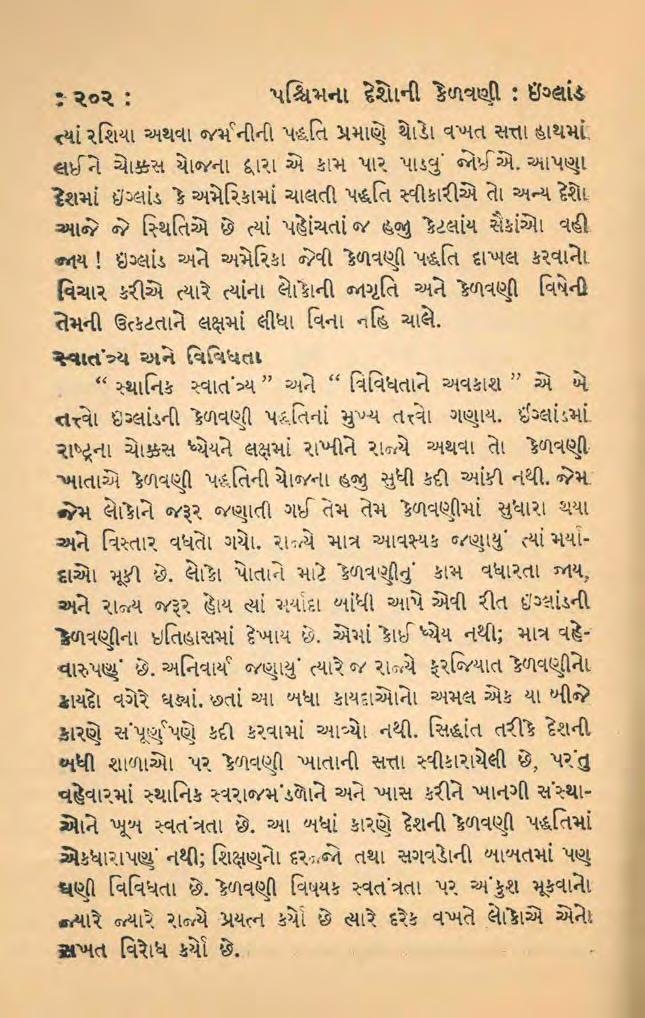 : ૨૦૨ : પશ્ચિમના દેશોની કેળવણી : ઇંગ્લાંડ
ત્યાં રશિયા અથવા જર્મનીની પદ્ધતિ પ્રમાણે થોડો વખત સત્તા હાથમાં
લઈને ચોક્કસ યોજના દ્વારા એ કામ પાર પાડવું જોઈએ. આપણા
દેશમાં ઇંગ્લાંડ કે અમેરિકામાં ચાલતી પદ્ધતિ સ્વીકારીએ તો અન્ય દેશો
આજે જે સ્થિતિએ છે ત્યાં પહોંચતાં જ હજી કેટલાંય સૈકાંઓ વહી
જાય ! ઇંગ્લાંડ અને અમેરિકા જેવી કેળવણી પદ્ધતિ દાખલ કરવાનો
વિચાર કરીએ ત્યારે ત્યાંના લોકોની જાગૃતિ અને કેળવણી વિષેની
તેમની ઉત્કટતાને લક્ષમાં લીધા વિના નહિ ચાલે.
સ્વાતંત્ર્ય અને વિવિધતા
“ સ્થાનિક સ્વાતંત્ર્ય ” અને “ વિવિધતાને અવકાશ ” એ બે
તત્ત્વો ઇંગ્લાંડની કેળવણી પદ્ધતિનાં મુખ્ય તત્ત્વો ગણાય. ઈંગ્લાંડમાં
રાષ્ટ્રના ચોક્કસ ધ્યેયને લક્ષમાં રાખીને રાજ્યે અથવા તો કેળવણી
ખાતાએ કેળવણી પદ્ધતિની યોજના હજી સુધી કદી આંકી નથી. જેમ
જેમ લોકોને જરૂર જણાતી ગઈ તેમ તેમ કેળવણીમાં સુધારા થયા
અને વિસ્તાર વધતો ગયો. રાજ્યે માત્ર આવશ્યક જણાયું ત્યાં મર્યા-
દાઓ મૂકી છે. લોકો પોતાને માટે કેળવણીનું કામ વધારતા જાય,
અને રાજ્ય જરૂર હોય ત્યાં મર્યાદા બાંધી આપે એવી રીત ઇંગ્લાંડની
કેળવણીના ઇતિહાસમાં દેખાય છે. એમાં કોઈ ધ્યેય નથી; માત્ર વહે-
વારુપણું છે. અનિવાર્ય જણાયું ત્યારે જ રાજ્યે ફરજિયાત કેળવણીનો
કાયદો વગેરે ઘડ્યાં. છતાં આ બધા કાયદાઓનો અમલ એક યા બીજે
કારણે સંપૂર્ણપણે કદી કરવામાં આવ્યો નથી. સિદ્ધાંત તરીકે દેશની
બધી શાળાઓ પર કેળવણી ખાતાની સત્તા સ્વીકારાયેલી છે, પરંતુ
વહેવારમાં સ્થાનિક સ્વરાજમંડળોને અને ખાસ કરીને ખાનગી સંસ્થા-
ઓને ખૂબ સ્વતંત્રતા છે. આ બધાં કારણે દેશની કેળવણી પદ્ધતિમાં
એકધારાપણું નથી; શિક્ષણનો દરજ્જો તથા સગવડોની બાબતમાં પણ
ઘણી વિવિધતા છે. કેળવણી વિષયક સ્વતંત્રતા પર અંકુશ મૂકવાનો
જ્યારે જ્યારે રાજ્યે પ્રયત્ન કર્યો છે ત્યારે દરેક વખતે લોકોએ એનો
સખત વિરોધ કર્યો છે.